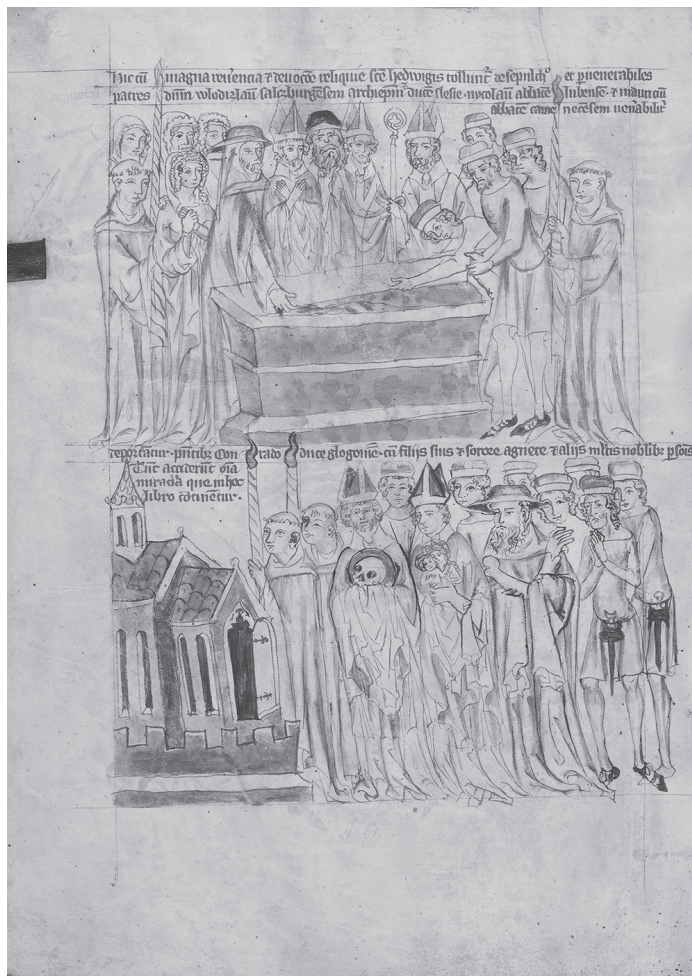 Hic cū magna reverencia ⁊ devocōe reliquie scē hedwigis tollunt̄ de sepulchº et p venerabiles
patres dn̄m wlodizlaū salczburgēsem archiep̄m ducē slesie nycolaū abbatē lubensē ⁊ mauriciū
abbatē camencēsem venerabilit̓
reportatur presentib̓ Conrado duce glogovie cū filijs suis ⁊ sorore agnete ⁊ alijs multis noblib̓ p̄sōis
Tūc acciderūt oīa
mirāda que in hoc
libro cōtinētur